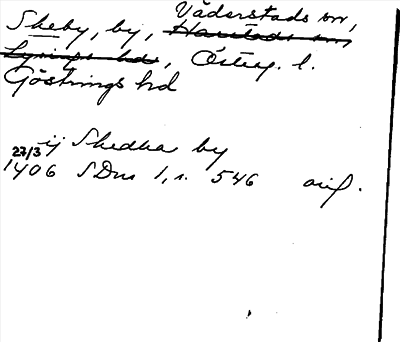 Väderstads sn,
Skeby, by, Harstads sn,
Lysings hd, Österg. l.
Göstrings hd
ij Skedha by
27/3
1406 SDns 1, s. 546 orig.